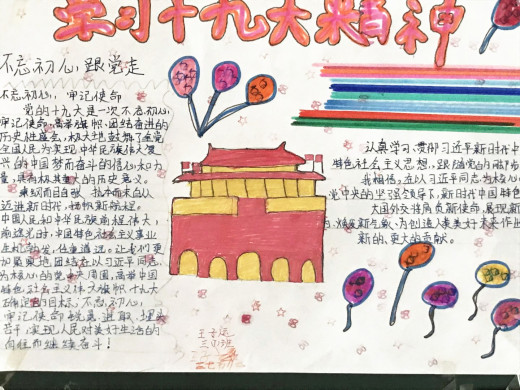 学习十九大精神
不忘初心，跟党走
不忘初心，牢记使命
党的十九大是一次不忘初心
牢记使命、高举旗帜、团结奋进的
历史性盛会，极大地鼓舞了全党
全国人民为实现中华民族伟大复
兴的中国梦而奋斗的信心和力
量，具有极其重大的历史意义。
迈进新时代，扬帆新征程。
中国人民和中华民族前程伟大，
前途光明，中国特色社会主义事业
生机勃发，任重道远。让我们更
加紧密地团结在以习近平同志
为核心的党中央周围，高举中国
特色社会主义伟大旗帜，十九大
的目标，不忘初心，
牢记使命，锐意进取，埋头
苦干，实现人民对美好生活的
向往而继续奋斗！
认真学习、贯彻习近平新时代中
特色社会主义思想，跟随党内的脚步
我相信，在以习近平同志为核心的
党中央的坚强领导下，新时代中国特色
大国外交将肩负新使命，展现新
焕发新气象，为创造人类美好未来作出
新的、更大的贡献。
三班